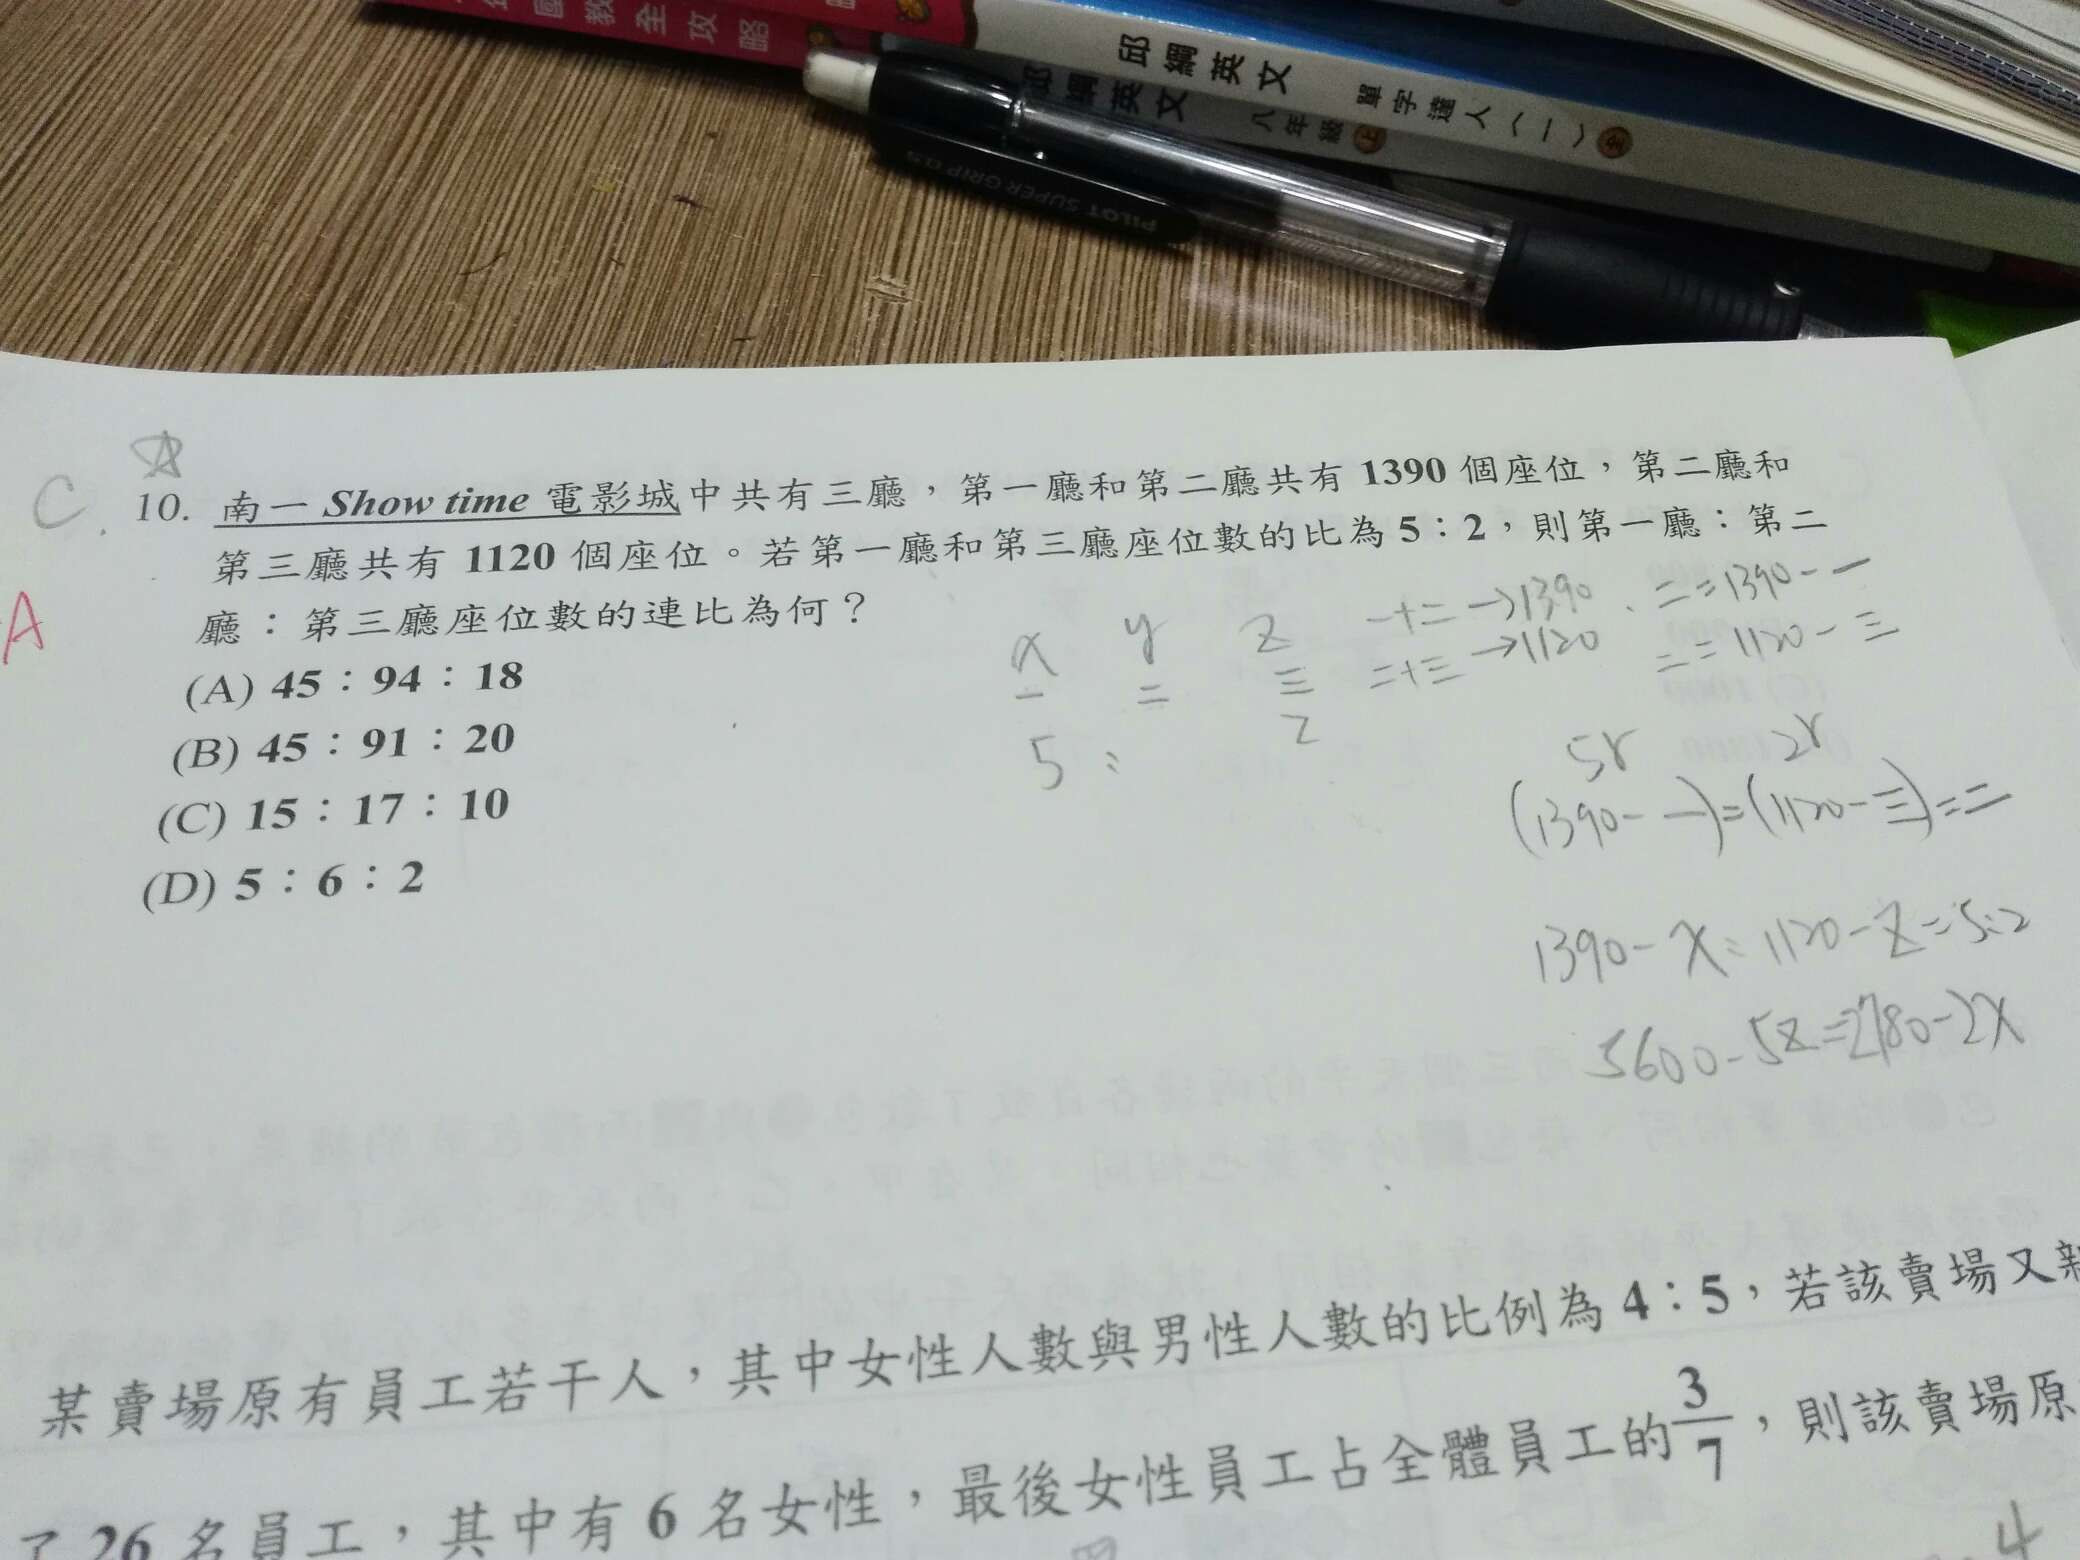 國教全攻略
邱綱英文 單字達人(一)
邱綱英文 八年級 上
PILOT SUPER GRIP 0.5
C
10. 南一 Show time 電影城中共有三廳，第一廳和第二廳共有 1390 個座位，第二廳和
第三廳共有 1120 個座位。若第一廳和第三廳座位數的比為 5：2，則第一廳：第二
廳：第三廳座位數的連比為何？
A
(A) 45：94：18
(B) 45：91：20
(C) 15：17：10
(D) 5：6：2
x y z
一 二 三
5 : 2
一+二→1390
二+三→1120
二=1390-一
二=1120-三
5r 2r
(1390-一)=(1120-三)=二
1390-x:1120-z=5:2
5600-5z=2780-2x
某賣場原有員工若干人，其中女性人數與男性人數的比例為 4：5，若該賣場又新
了 26 名員工，其中有 6 名女性，最後女性員工占全體員工的 3/7，則該賣場原
4